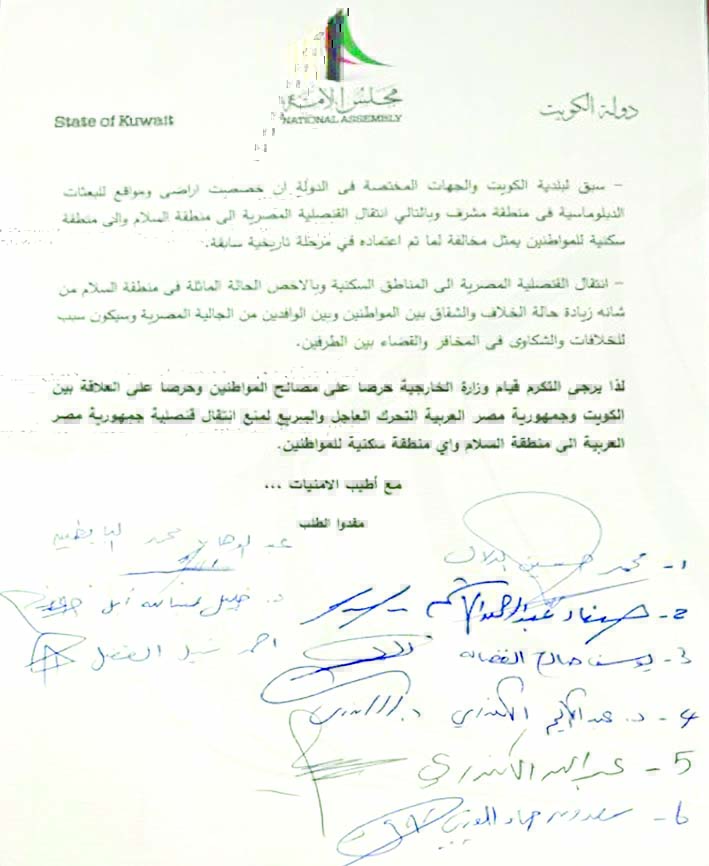 مجلس الأمة
State of Kuwait
NATIONAL ASSEMBLY
دولة الكويت
– سبق لبلدية الكويت والجهات المختصة فى الدولة ان خصصت اراضى ومواقع للبعثات
الدبلوماسية فى منطقة مشرف وبالتالي انتقال القنصلية المصرية الى منطقة السلام والى منطقة
سكنية للمواطنين يمثل مخالفة لما تم اعتماده في مرحلة تاريخية سابقة.
– انتقال القنصلية المصرية الى المناطق السكنية وبالاخص الحالة الماثلة فى منطقة السلام من
شانه زيادة حالة الخلاف والشقاق بين المواطنين وبين الوافدين من الجالية المصرية وسيكون سبب
للخلافات والشكاوى فى المخافر والقضاء بين الطرفين.
لذا يرجى التكرم قيام وزارة الخارجية حرصا على مصالح المواطنين وحرصا على العلاقة بين
الكويت وجمهورية مصر العربية التحرك العاجل والسريع لمنع انتقال قنصلية جمهورية مصر
العربية الى منطقة السلام واي منطقة سكنية للمواطنين.
مع أطيب الامنيات ...
مقدوا الطلب
عبدالوهاب محمد البابطين
1- محمد حسين الدلال
د. خليل عبدالله أبل
2- صفاء عبدالرحمن الهاشم
احمد نبيل الفضل
3- يوسف صالح الفضالة
4- د. عبدالكريم الكندري
5- عبدالله الكندري
6-